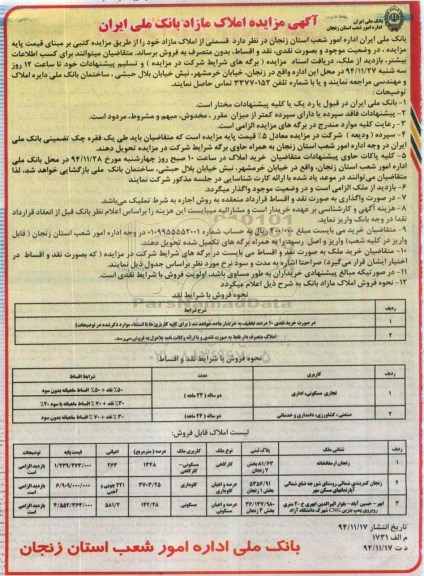 آگهی مزایده املاک مازاد بانک ملی ایران
بانک ملی ایران
اداره امور شعب استان زنجان
بانک ملی ایران اداره امور شعب استان زنجان در نظر دارد قسمتی از املاک مازاد خود را از طریق مزایده کتبی بر مبنای قیمت پایه
مزایده، در وضعیت موجود و بصورت نقدی، نقد و اقساط، بدون متصرف به فروش برساند. متقاضیان میتوانند برای کسب اطلاعات
بیشتر، بازدید از ملک، دریافت اسناد مزایده (برگه های شرایط شرکت در مزایده) و تسلیم پیشنهادات خود تا ساعت ۱۲ روز
سه شنبه ۹۴/۱۱/۲۷ در محل این اداره واقع در زنجان، خیابان خرمشهر، نبش خیابان بلال حبشی، ساختمان بانک ملی دایره املاک
و مهندسی مراجعه نمایند و یا با شماره تلفن ۳۳۷۷۰۱۵۲ تماس حاصل نمایند.
توضیحات:
۱- بانک ملی ایران در قبول یا رد یک یا کلیه پیشنهادات مختار است.
۲- پیشنهادات فاقد سپرده یا دارای سپرده کمتر از میزان مقرر، مخدوش، مبهم و مشروط، مردود است.
۳- رعایت کلیه موارد مندرج در برگه های مزایده الزامی است.
۴- سپرده (ودیعه) شرکت در مزایده معادل ۵٪ قیمت پایه مزایده است که متقاضیان باید طی یک فقره چک تضمینی بانک ملی
ایران در وجه اداره امور شعب استان زنجان به همراه حاوی برگه شرایط شرکت در مزایده تحویل دهند.
۵- کلیه پاکات حاوی پیشنهادات متقاضیان خرید املاک در ساعت ۱۰ صبح روز چهارشنبه مورخ ۹۴/۱۱/۲۸ در محل بانک ملی
اداره امور شعب استان زنجان، واقع در خیابان خرمشهر، نبش خیابان بلال حبشی، ساختمان بانک ملی بازگشایی خواهد شد، لذا
متقاضیان می توانند در موعد یاد شده با ارائه کارت شناسایی در جلسه مذکور شرکت نمایند
۶- بازدید از ملک الزامی است و در وضعیت موجود واگذار میگردد.
۷- در صورت واگذاری به صورت نقد و اقساط قرارداد منعقده به روش اجاره به شرط تملیک می‌باشد.
۸- هزینه آگهی و کارشناسی بر عهده خریدار است و مشارالیه میبایست این هزینه را براساس اعلام نظر بانک قبل از انعقاد قرارداد
نقدا در وجه بانک واریز نماید.
۹- متقاضیان خرید می بایست مبلغ ریال به حساب شماره در وجه اداره امور شعب استان زنجان (قابل
واریز در کلیه شعب) واریز و اصل رسید را به همراه برگه های تکمیل شده تحویل دهند.
۱۰- متقاضیان خرید ملک به صورت نقد و اقساط می بایست در برگه های شرایط شرکت در مزایده (که بصورت نقد و اقساط در
اختیار ایشان قرار می‌گیرد) صراحتا اشاره به مدت و سود نرخ مورد نظر براساس جدول ذیل نمایند.
۱۱- در صورتیکه مبالغ پیشنهادی خریداران به طور مساوی باشد، اولویت فروش با شرایط نقدی است.
۱۲- نحوه فروش املاک مازاد بانک به شرح ذیل اعلام میگردد
نحوه فروش با شرایط نقد
ردیف شرح شرایط
۱ در صورت خرید نقدی ۱۰ درصد تخفیف به خریدار داده خواهد شد (برای کلیه کاربری ها با استثناء موارد ذکر شده در توضیحات)
۲ املاک متصرف دار فقط به صورت نقدی و با ارائه وکالت نامه بلاعزل به فروش می‌رسد.
نحوه فروش با شرایط نقد و اقساط
ردیف کاربری مدت شرایط اقساط
۱ تجاری مسکونی، اداری دو ساله (۲۴ ماهه)
۲ صنعتی، کشاورزی، دامداری و خدماتی دو ساله (۲۴ ماهه)
لیست املاک قابل فروش:
ردیف نشانی ملک پلاک ثبتی نوع ملک کاربری ملک عرصه (مترمربع) اعیانی قیمت پایه توضیحات
۱ زنجان ارمغانخانه ۸۱/۶۳ بخش ۷ زنجان کارگاهی مسکونی- کارگاهی ۱۳۲۸ ۲۶۳ بازدید الزامی است
۲ زنجان کمربندی شمالی روستای ضلع شمالی آپارتمانهای مسکن مهر ۵۳۵۶/۹۱ بخش ۱ زنجان عرصه و اعیان گاوداری گاوداری ۳۷۰۳/۲۵ بازدید الزامی است
۳ ابهر- حسین آباد- بلوار ابهری خ ۲۰ متری روبروی پمپ بنزین CNG شهرک دانشگاه آزاد بخش ۳ زنجان عرصه و اعیان مسکونی مسکونی ۱۴۲/۲۸ ۵۸۱/۲ بازدید الزامی است
تاریخ انتشار ۹۴/۱۱/۱۷
م الف ۱۷۳۱
د ت ۹۴/۱۱/۱۷
بانک ملی اداره امور شعب استان زنجان
ParsNamadData